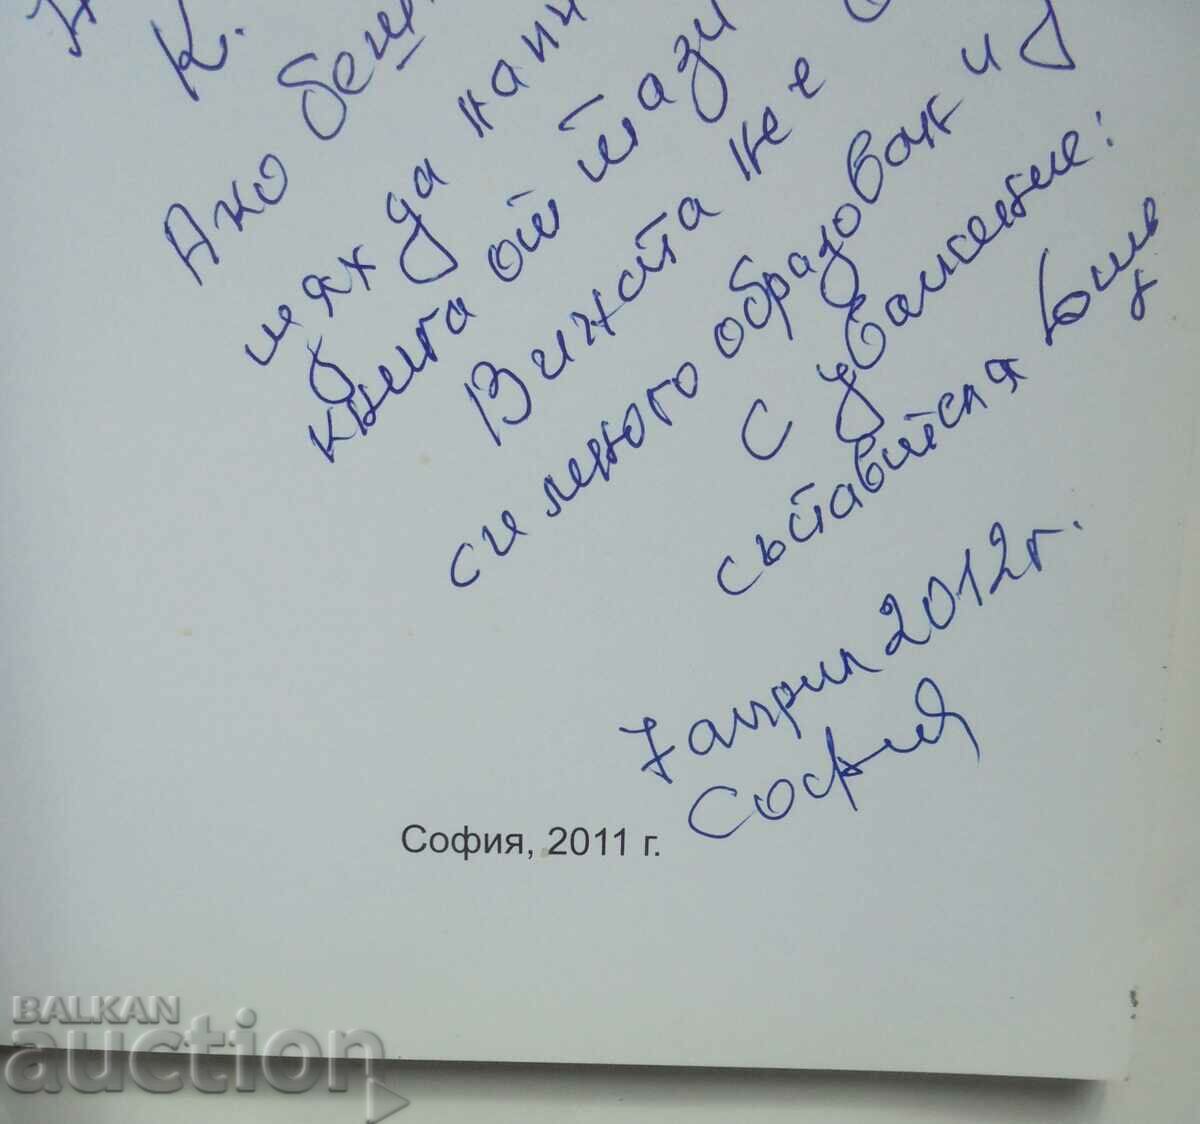 К.
Ако
щях да
книга от тази
Вината не е
си много образован и
С уважение:
съставителя
7 април 2012 г.
София
София, 2011 г.
BALKAN
auction